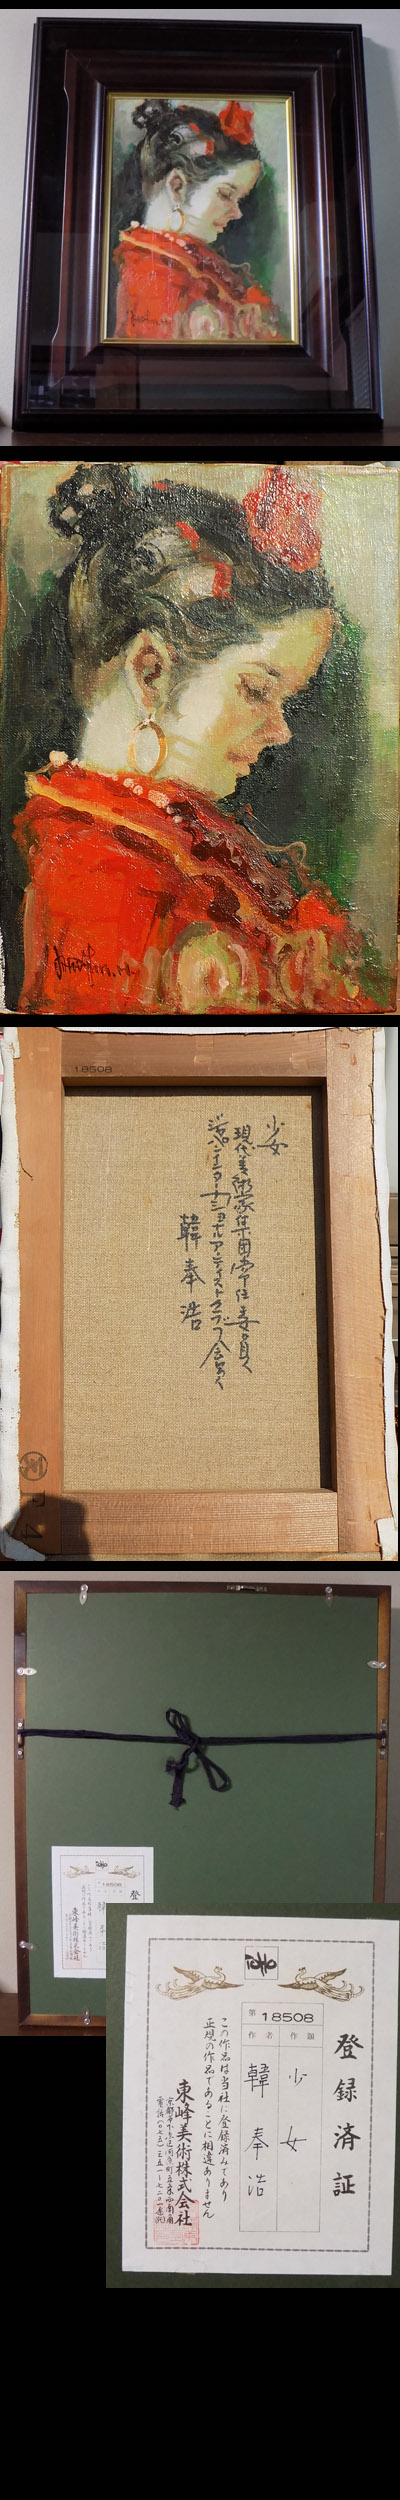 18508
少女
現代美術家集団常任委員
ジャパンインターナショナルアーティストクラブ会員
韓奉浩
4
TOHO
18508
登
TOHO
登録済証
第 18508
作題
作者
少女
韓奉浩
この作品は当社に登録済みであり
正規の作品であることに相違ありません
東峰美術株式会社